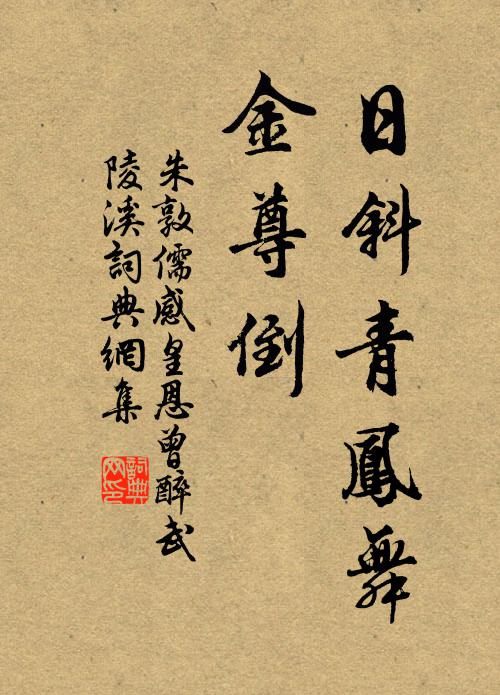 日斜青鳳舞
金尊倒
朱敦儒感皇恩曾醉武
陵溪詞典網集
詞典
网印